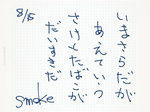 8/5
いまさらだが
あえていう
さけとたばこが
だいすきだ
smoke